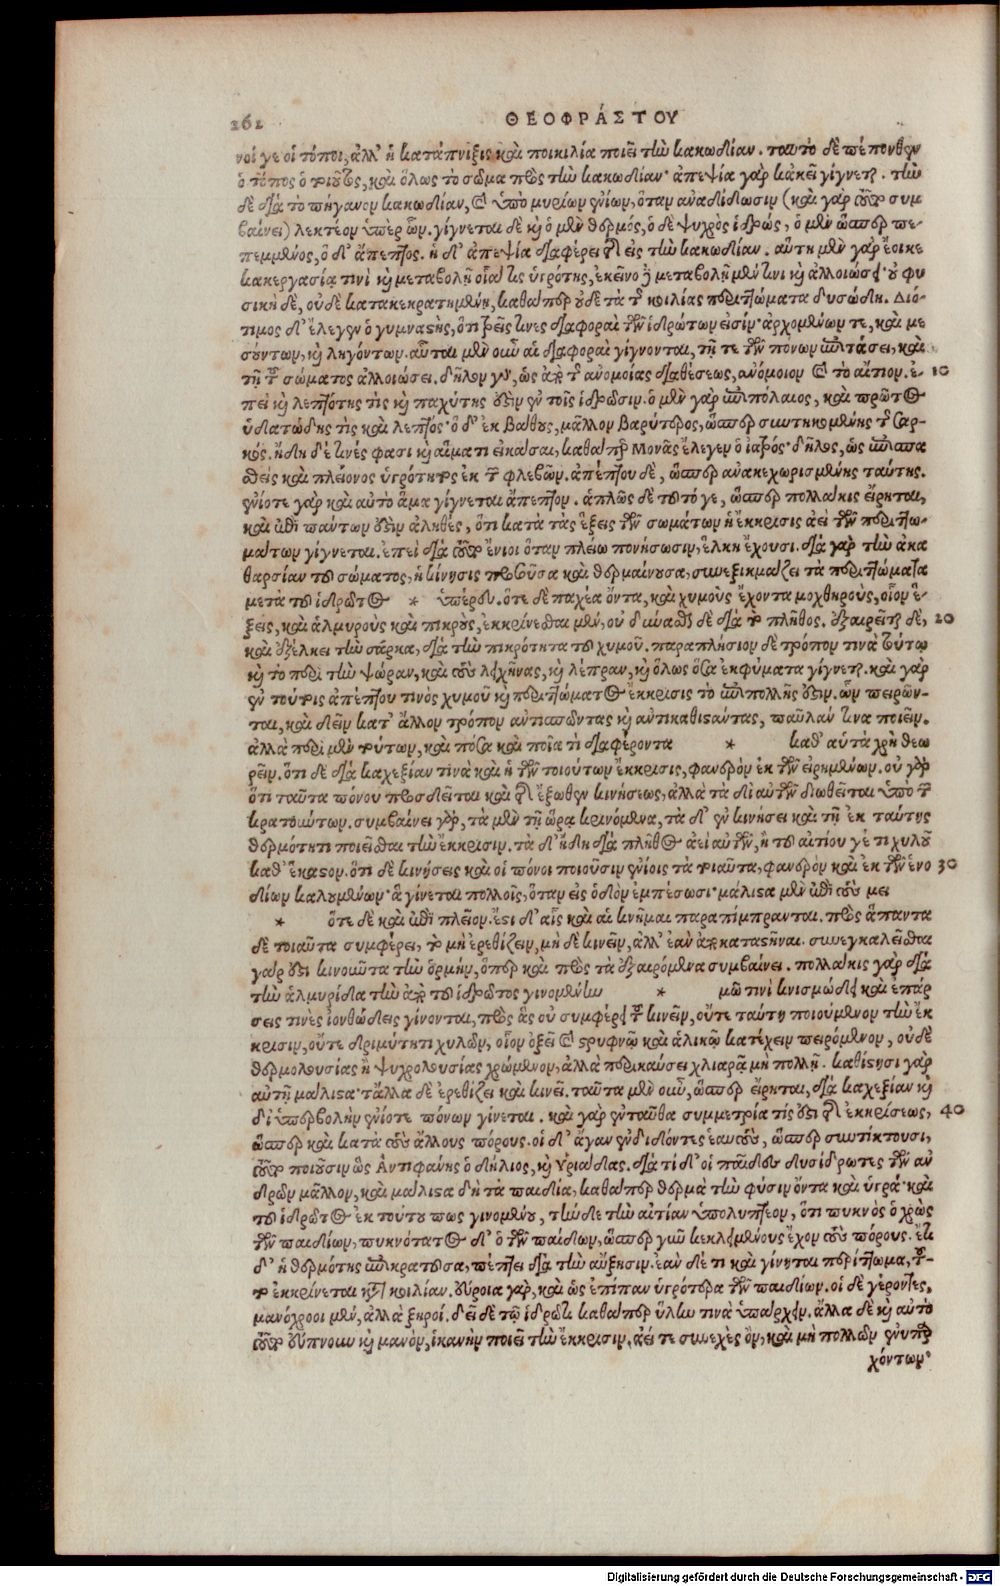 262 ΘΕΟΦΡΆΣΤΟΥ
νοί γε οἱ τόποι, ἀλλ' ἡ κατάπνιξις καὶ ποικιλία ποιεῖ τὴν κακωδίαν. ταυτὸ δὲ πέπονθεν
ὁ τόπος ὁ τοιοῦτος, καὶ ὅλως τὸ σῶμα πρὸς τὴν κακωδίαν· ἀπεψία γὰρ κἀκεῖ γίγνεται. τὴν
δὲ διὰ τὸ πήγανον κακωδίαν, καὶ ὑπὸ μυρίων ἐνίων, ὅταν ἀναδίδωσιν (καὶ γὰρ τοῦτο συμ
βαίνει) λεκτέον ὑπὲρ ὧν. γίγνεται δὲ καὶ ὁ μὲν θερμός, ὁ δὲ ψυχρὸς ἱδρώς, ὁ μὲν ὥσπερ πε-
πεμμένος, ὁ δ' ἄπεπτος. ἡ δ' ἀπεψία διαφέρει τῆς εἰς τὴν κακωδίαν. αὕτη μὲν γὰρ ἔοικε
κακεργασίᾳ τινὶ καὶ μεταβολῇ οἷα τις ὑγρότης, ἐκεῖνο δὲ μεταβολῇ μέν τινι καὶ ἀλλοιώσει· οὐ φυ
σικῇ δέ, οὐδὲ κατακεκρατημένη, καθάπερ οὐδὲ τὰ τῆς κοιλίας περιττώματα δυσώδη. Διό-
τιμος δ' ἔλεγεν ὁ γυμναστής, ὅτι τρεῖς τινες διαφοραὶ τῶν ἱδρώτων εἰσίν· ἀρχομένων τε, καὶ με
σούντων, καὶ ληγόντων. αὗται μὲν οὖν αἱ διαφοραὶ γίγνονται, τῇ τε τῶν πόνων ἐπιτάσει, καὶ
τῇ τοῦ σώματος ἀλλοιώσει. δῆλον γὰρ, ὡς ἀπὸ τῆς ἀνομοίας διαθέσεως, ἀνόμοιον καὶ τὸ αἴτιον. ἐ- 10
πεὶ καὶ λεπτότης τὶς καὶ παχύτης ἐστὶν ἐν τοῖς ἱδρῶσιν. ὁ μὲν γὰρ ἐπιπόλαιος, καὶ πρῶτος
ὑδατώδης τὶς καὶ λεπτός· ὁ δ' ἐκ βάθους, μᾶλλον βαρύτερος, ὥσπερ συντηκομένης τῆς σαρ-
κός. ἤδη δέ τινές φασι καὶ αἵματι εἰκάσαι, καθάπερ Μονᾶς ἔλεγεν ὁ ἰατρός· δῆλος, ὡς ἐπισπα
σθεὶς καὶ πλείονος ὑγρότητος ἐκ τῶν φλεβῶν. ἀπέπτου δέ, ὥσπερ ἀνακεχωρισμένης ταύτης.
ἐνίοτε γὰρ καὶ αὐτὸ ἅμα γίγνεται ἄπεπτον. ἁπλῶς δὲ τοῦτό γε, ὥσπερ πολλάκις εἴρηται,
καὶ ἐπὶ πάντων ἐστὶν ἀληθές, ὅτι κατὰ τὰς ἕξεις τῶν σωμάτων ἡ ἔκκρισις ἀεὶ τῶν περιττω-
μάτων γίγνεται. ἐπεὶ διὰ τοῦτο ἔνιοι ὅταν πλείω πονήσωσιν, ἕλκη ἔχουσι. διὰ γὰρ τὴν ἀκα
θαρσίαν τοῦ σώματος, ἡ κίνησις προσοῦσα καὶ θερμαίνουσα, συνεξικμάζει τὰ περιττώματα
μετὰ τοῦ ἱδρῶτος * ὑπέρου. ὅτε δὲ παχέα ὄντα, καὶ χυμοὺς ἔχοντα μοχθηρούς, οἷον ἕ-
ξεις, καὶ ἁλμυροὺς καὶ πικρούς, ἐκκρίνεσθαι μέν, οὐ δύναται δὲ διὰ τὸ πλῆθος. ἐξαιρεῖται δέ, 20
καὶ ἐξέλκει τὴν σάρκα, διὰ τὴν πικρότητα τοῦ χυμοῦ. παραπλήσιον δὲ τρόπον τινὰ τούτῳ
καὶ τὸ περὶ τὴν ψώραν, καὶ τοὺς λειχῆνας, καὶ λέπραν, καὶ ὅλως ὅσα ἐκφύματα γίγνεται. καὶ γὰρ
ἐν τούτοις ἀπέπτου τινὸς χυμοῦ καὶ περιττώματος ἔκκρισις τὸ ἐπιπολῆς ἐστιν. ὧν πειρῶν-
ται, καὶ δεῖν κατ' ἄλλον τρόπον ἀντισπῶντας καὶ ἀντικαθιστάντας, παῦλάν τινα ποιεῖν.
ἀλλὰ περὶ μὲν τούτων, καὶ πόσα καὶ ποῖα τὶ διαφέροντα * καθ' αὑτὰ χρὴ θεω
ρεῖν. ὅτι δὲ διὰ καχεξίαν τινὰ καὶ ἡ τῶν τοιούτων ἔκκρισις, φανερὸν ἐκ τῶν εἰρημένων. οὐ γὰρ
ὅτι ταῦτα πόνου προσδεῖται καὶ τῆς ἔξωθεν κινήσεως, ἀλλὰ τὰ δι' αὑτῶν διωθεῖται ὑπὸ τοῦ
κρατοῦντων. συμβαίνει γὰρ, τὰ μὲν τῇ ὥρᾳ κρινόμενα, τὰ δ' ἐν κινήσει καὶ τῇ ἐκ ταύτης
θερμότητι ποιεῖσθαι τὴν ἔκκρισιν. τὰ δ' ἤδη διὰ πλῆθος ἀεὶ αὐτῶν, ἢ τοῦ αἰτίου γέ τι χυλοῦ
καθ' ἕκαστον. ὅτι δὲ κινήσεις καὶ οἱ πόνοι ποιοῦσιν ἐνίοις τὰ τοιαῦτα, φανερὸν καὶ ἐκ τῶν ἐνο 30
δίων καλουμένων· ἃ γίνεται πολλοῖς, ὅταν εἰς ὁδὸν ἐμπέσωσι· μάλιστα μὲν ἐπὶ τοὺς μει
* ὅτε δὲ καὶ ἐπὶ πλεῖον. ἔστι δ' αἷς καὶ αἱ κνῆμαι παραπίμπρανται. πρὸς ἅπαντα
δὲ τοιαῦτα συμφέρει, τὸ μὴ ἐρεθίζειν, μὴ δὲ κινεῖν, ἀλλ' ἐᾶν ἀποκαταστῆναι. συνεγκαλεῖσθαι
γάρ ἐστι κινοῦντα τὴν ὁρμήν, ὅπερ καὶ πρὸς τὰ ἐξαιρόμενα συμβαίνει. πολλάκις γὰρ διὰ
τὴν ἁλμυρίδα τὴν ἀπὸ τοῦ ἱδρῶτος γινομένην * μῶ τινὶ κνισμώδει καὶ ἐπάρ
σεις τινὲς ἰονθώδεις γίνονται, πρὸς ἃς οὐ συμφέρει τὸ κινεῖν, οὔτε ταύτῃ ποιούμενον τὴν ἔκ
κρισιν, οὔτε δριμύτητι χυλῶν, οἷον ὀξεῖ καὶ στρυφνῷ καὶ ἁλικῷ κατέχειν πειρόμενον, οὐδὲ
θερμολουσίας ἢ ψυχρολουσίας χρώμενον, ἀλλὰ περικαύσει χλιαρᾷ μὴ πολλῇ. καθίστησι γὰρ
αὐτῇ μάλιστα· τἄλλα δὲ ἐρεθίζει καὶ κινεῖ. ταῦτα μὲν οὖν, ὥσπερ εἴρηται, διὰ καχεξίαν καὶ
δι' ὑπερβολὴν ἐνίοτε πόνων γίνεται. καὶ γὰρ ἐνταῦθα συμμετρία τίς ἐστι τῆς ἐκκρίσεως, 40
ὥσπερ καὶ κατὰ τοὺς ἄλλους πόρους. οἱ δ' ἄγαν ἐνδιδόντες ἑαυτούς, ὥσπερ συντίκτουσι,
τοῦτο ποιοῦσιν ὡς Ἀντιφάνης ὁ δήλιος, καὶ Υριάδας. διὰ τί δ' οἱ παῖδες δυσίδρωτες τῶν ἀν
δρῶν μᾶλλον, καὶ μάλιστα δὴ τὰ παιδία, καθάπερ θερμὰ τὴν φύσιν ὄντα καὶ ὑγρά· καὶ
τοῦ ἱδρῶτος ἐκ τούτου πως γινομένου, τήνδε τὴν αἰτίαν ὑποληπτέον, ὅτι πυκνὸς ὁ χρὼς
τῶν παιδίων, πυκνότατος δ' ὁ τῶν παίδων, ὥσπερ γοῦν κεκλειμένους ἔχον τοὺς πόρους. ἔτι
δ' ἡ θερμότης ἐπικρατοῦσα, πέττει διὰ τὴν αὔξησιν. ἐὰν δέ τι καὶ γίνηται περίττωμα, τοῦ-
το ἐκκρίνεται κατὰ κοιλίαν. εὔροια γάρ, καὶ ὡς ἐπίπαν ὑγρότερα τῶν παιδίων. οἱ δὲ γέροντες,
μανόχροοι μέν, ἀλλὰ ξηροί. δεῖ δὲ τῷ ἱδρῶτι καθάπερ ὕλην τινὰ ὑπάρχειν. ἅλλα δὲ καὶ αὐτὸ
τοῦτο εὔπνουν καὶ μανόν, ἱκανὴν ποιεῖ τὴν ἔκκρισιν, ἀεί τε συνεχὲς ὄν, καὶ μὴ πολλῶν ἐνυπαρ
χόντων·
Digitalisierung gefördert durch die Deutsche Forschungsgemeinschaft - DFG